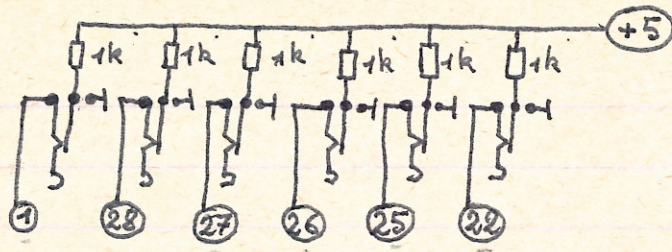 +5
1k 1k 1k 1k 1k 1k
1 28 27 26 25 22